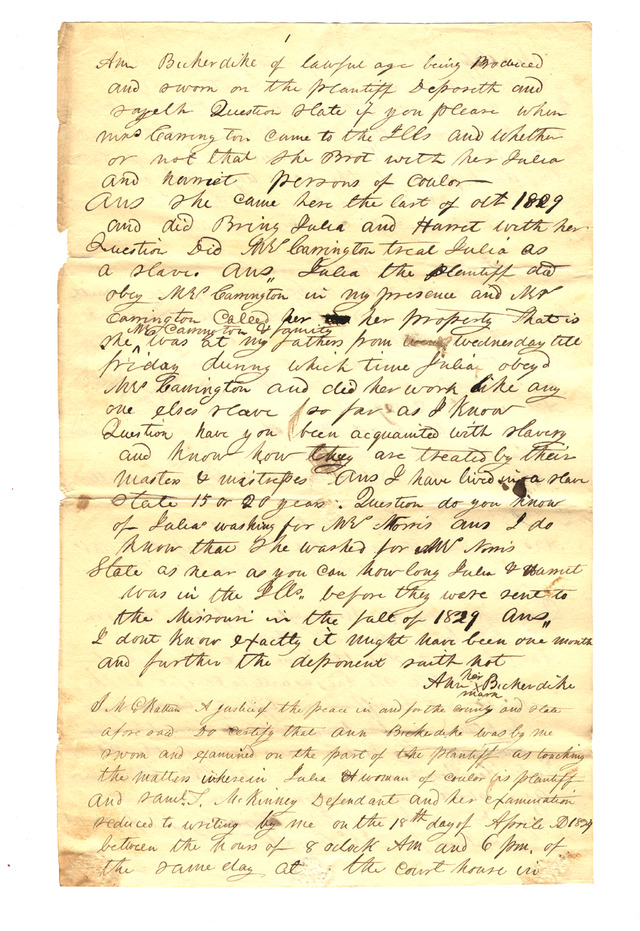 1
Ann Bickerdike of lawful age being Produced
and sworn on the plantiff Deposeth and
sayeth Question state if you please when
Mrs Carrington came to the Ills and whether
or not that she Brot with her Julia
and Harriet persons of Coulor
Ans she came here the last of Oct 1829
and did Bring Julia and Harret with her
Question Did Mrs Carrington treat Julia as
a slave Ans,, Julia the plantiff did
obey Mrs Carrington in my presence and Mrs
Carrington Called her her property That is
Mrs Carrington & family
she was at my fathers from wednesday till
friday during which time Julia obeyd
Mrs Carrington and did her work like any
one elses slave so far as I know
Question have you been acquainted with slavery
and know how they are treated by their
masters & mistresses Ans I have lived in a slave
state 15 or 20 years. Question do you know
of Julias washing for Mrs Morris ans I do
know that she washed for Mrs Norris
State as near as you can how long Julia & Harriet
was in the Ills,, before they were sent to
the Missouri in the fall of 1829 Ans,,
I dont know exactly it might have been one month
and further the deponent saith not
Ann her mark Bickerdike
I M C Rattan A justice of the peace in and for the county and state
afore said Do certify that ann Bickerdike was by me
sworn and examined on the part of the plantiff as touching
the matters wherein Julia A woman of coulor is plantiff
and Saml. T. McKinney Defendant and her examination
reduced to writing by me on the 18th day of Aprile AD
between the hours of 8 oclock Am and 6 pm. of
the same day at the court house in